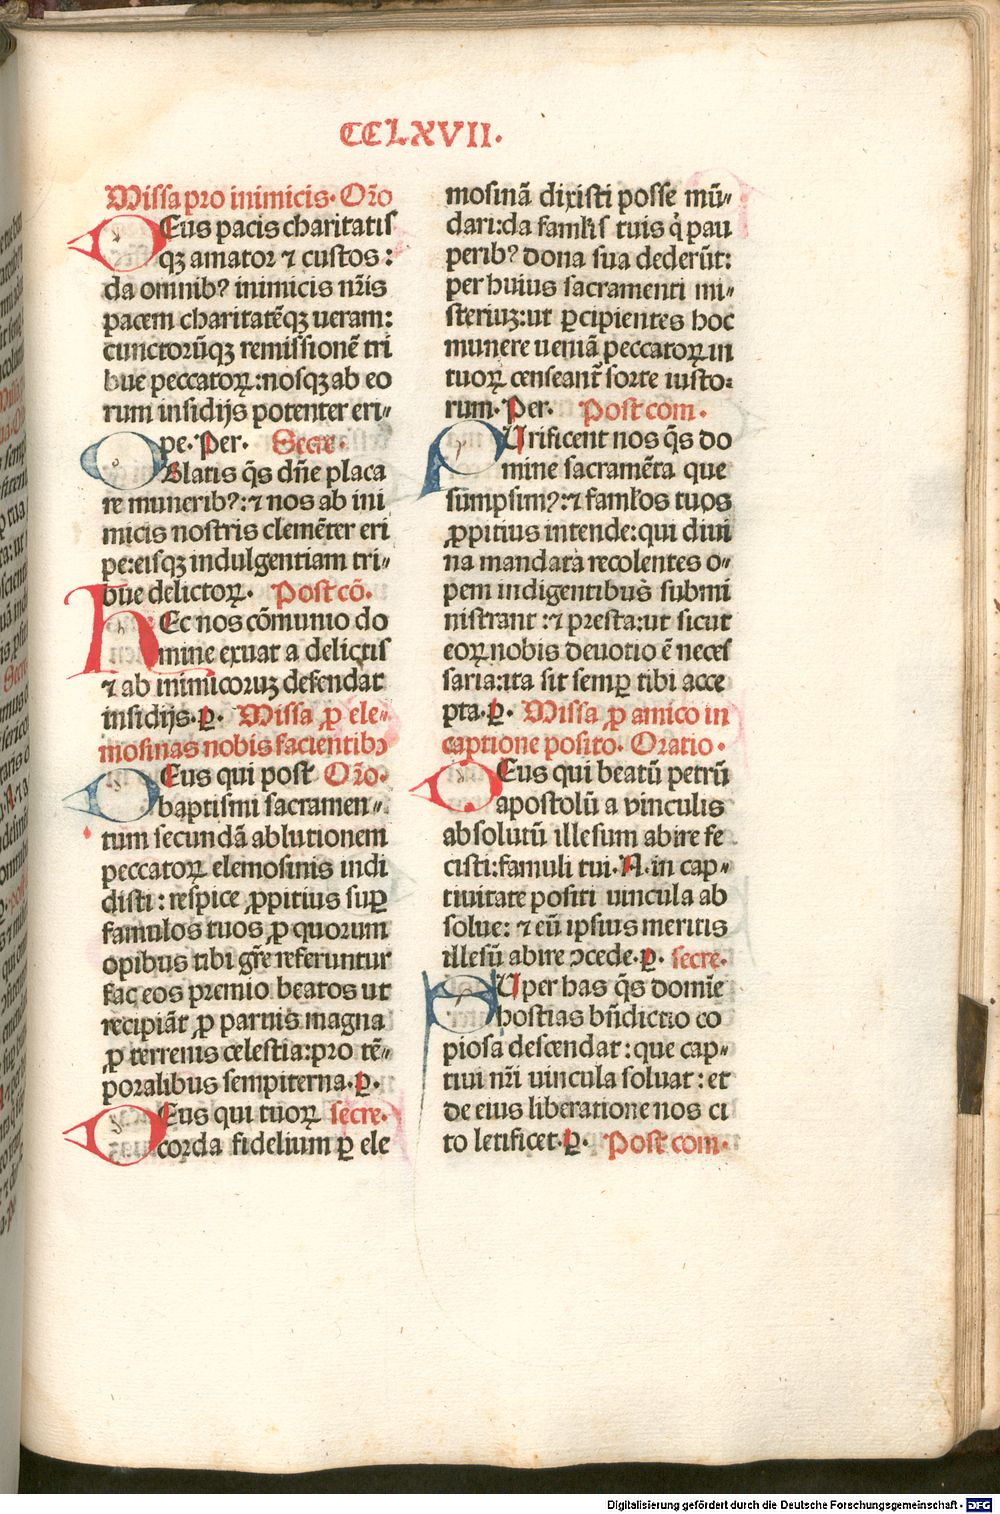 CCLXVII.
Missa pro inimicis. Oro̅
DEus pacis charitatis
qꝫ amator ⁊ custos:
da omnibꝰ inimicis nr̅is
pacem charitate̅qꝫ ueram:
cunctoru̅qꝫ remissione̅ tri
bue peccatoꝝ: nosqꝫ ab eo
rum insidijs potenter eri⸗
pe. Per. Secre.
OBlatis q̅s dn̅e placa
re muneribꝰ: ⁊ nos ab ini
micis nostris cleme̅ter eri
pe: eisqꝫ indulgentiam tri⸗
bue delictoꝝ. Post co̅.
HEc nos co̅munio do
mine exuat a delictis
⁊ ab inimicoruꝫ defendat
insidijs. ꝑ. Missa ꝓ ele⸗
mosinas nobis facientibꝰ
DEus qui post Oro̅.
baptismi sacramen⸗
tum secunda̅ ablutionem
peccatoꝝ elemosinis indi
disti: respice ꝓpitius suꝑ
famulos tuos ꝓ quorum
opibus tibi gr̅e referuntur
fac eos premio beatos ut
recipia̅t ꝓ paruis magna
ꝓ terrenis celestia: pro te̅⸗
poralibus sempiterna. ꝑ.
DEus qui tuoꝝ secre.
corda fidelium ꝑ ele
mosina̅ dixisti posse mu̅⸗
dari: da famlis tuis q̇ pau
peribꝰ dona sua dederu̅t:
per huius sacramenti mi⸗
steriuꝫ: ut ꝑcipientes hoc
munere uenia̅ peccatoꝝ in
tuoꝝ censeant̅ sorte iusto⸗
rum. Per. Post com.
PUrificent nos q̅s do
mine sacrame̅ta que
sumpsimꝰ: ⁊ famlos tuos
ꝓpitius intende: qui diui
na mandata recolentes o⸗
pem indigentibus submi
nistrant: ⁊ presta: ut sicut
eoꝝ nobis deuotio e̅ neces
saria: ita sit semꝑ tibi acce
pta. ꝑ. Missa ꝓ amico in
captione posito. Oratio.
DEus qui beatu̅ petru̅
apostolu̅ a vinculis
absolutu̅ illesum abire fe
cisti: famuli tui. N. in cap⸗
tiuitate positi uincula ab
solue: ⁊ eu̅ ipsius meritis
illesu̅ abire ↄcede. ꝑ. secre.
SUper has q̅s domi̅e
hostias bn̅dictio co
piosa descendat: que cap⸗
tiui nr̅i uincula soluat: et
de eius liberatione nos ci
to letificet. ꝑ. Post com.
Digitalisierung gefördert durch die Deutsche Forschungsgemeinschaft - DFG